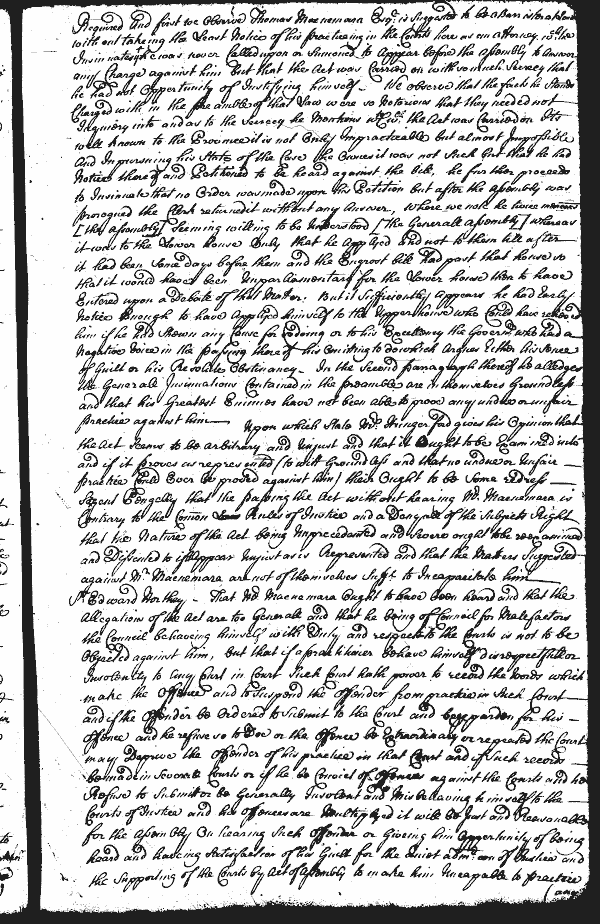 Required And first we observe Thomas Macnemara Esqr. is Suggested to be a Barister at Law
without taking the Least Notice of his practiceing in the Courts here as an Attorney,
Insinuates he was never Called upon or Sumoned to Appear before the Assembly to Answer
any Charge against him but that the Act was Carried on with so much Secresy that
he had not Opportunity of Justifying himself. We observe that the facts he Stands
Charged with in the preamble of that Law were so Notorious that they needed not
Inquiry into and as to the Secresy he Mentions wth. which the Act was Carried on Its
well known to the Province it is not Only Impracticable but almost Impossible
And Inpursuing his State of the Case he Ownes it was not Such but that he had
Notice thereof and Petitioned to be heard against the bill, he further proceeds
to Insinuate that no Order was made upon this Petition but after the Assembly was
prorogued the Clerk returned it without any Answer, where we note he twice
[the Assembly] Seeming willing to be Understood [the Generall Assembly] whereas
it was to the Lower house Only that he Applyed and not to them till after
it had been Some days before them and the Engrost bill had past that house so
that it would have been Unparliamentary for the Lower house then to have
Entered upon a Debate of that Matter. But it Sufficiently Appears he had Early
Notice Enough to have Applyed himself to the Upper house who Could have releived
him if he had Shewn any Cause for so doing or to his Excellency the Governr. who had a
Negative Voice in the passing thereof his omitting to do which Argues Either his Sence
of Guilt or his Resolute Obstinancy. In the Second paragraph thereof he alledges
the Generall Insinuations Contained in the preamble are in themselves Groundless
and that his Greatest Enimies have not been able to prove any undue or unfair
practice against him Upon which State Mr. Hungerford gives his Opinion that
the Act Seems to be arbitrary and Unjust and that it Ought to be Examined into
and if it proves as represented (to witt Groundless and that no undue or Unfair
practice Could Ever be proved against him) their Ought to be Some redress
Serjeant Pengelly that the passing the Act without hearing Mr. Macnemara is
Contrary to the Comon Rules of Justice and a Danger of the Subjects Right
that the Nature of the Act being Unprecedented and Severe ought to be reexamined
and Dissented to if it Appear Unjust as is Represented and that the Matters Suggested
against Mr. Macnemara are not of themselves Suffit. to Incapacitate him
Sr. Edward Northey - That Mr. Macnemara Ought to have been heard and that the
Allegations of the Act are too Generall and that he being of Councill for Malefactors
the Council behaveing himself with Duty and respect to the Courts is not to be
Objected against him, but that if a practicioner behave himself disrespectfull or
Insolently to any Court in Court Such Court hath power to record the Words which
make the Offence and to Suspend the Offender from practice in Such Court
and if the Offender be Ordered to Submit to the Court and begg pardon for his
Offence and he refuse so to Doe or the Offence be Extraordinary or repeated the Court
may Deprive the Offender of his practice in that Court and if Such records
be made in Severall Courts or if he be Convict of Offences against the Courts and he
Refuse to Submitt or be Generally Insolent and Misbehaving himself to the
Courts of Justice and his Offences are Multiplyed it will be Just and Reasonable
for the Assembly On hearing Such Offender or Giveing him Opportunity of being
heard and haveing Satisfaction of his Guilt for the Quiet admi:con of Justice and
the Supporting of the Courts by Act of Assembly to make him Uncapable to practice